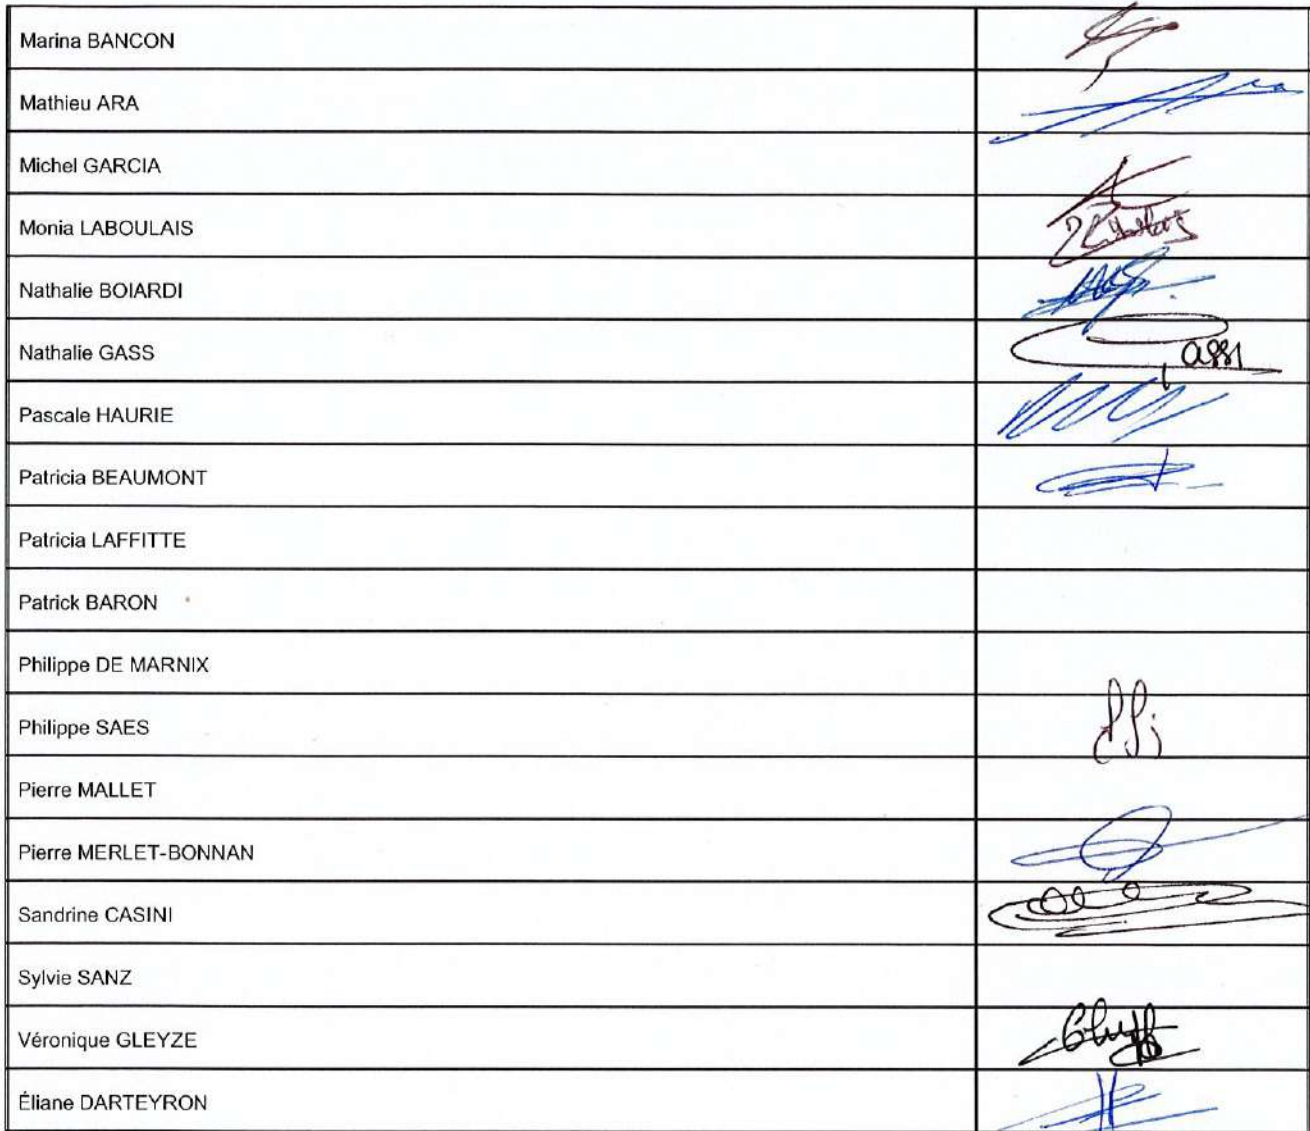 Marina BANCON
Mathieu ARA
Michel GARCIA
Monia LABOULAIS
Nathalie BOIARDI
Nathalie GASS
Pascale HAURIE
Patricia BEAUMONT
Patricia LAFFITTE
Patrick BARON
Philippe DE MARNIX
Philippe SAES
Pierre MALLET
Pierre MERLET-BONNAN
Sandrine CASINI
Sylvie SANZ
Véronique GLEYZE
Éliane DARTEYRON